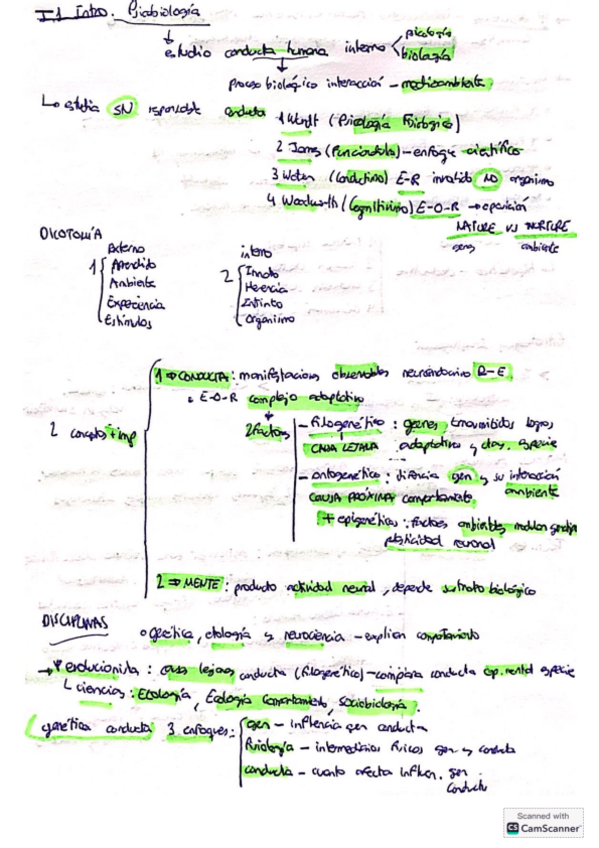 T.1 Intro. Psicobiología
estudio conducta humana interno psicología
biología
proceso biológico interacción - medioambiente
Lo estudia SN responsable conducta 1 Wundt (Psicología Fisiológica)
2 James (Funcionalista) - enfoque científico
3 Watson (conductismo) E-R invalido NO organismo
4 Woodworth (Cognitivismo) E-O-R → aparición
NATURE VS NURTURE
genes ambiente
DICOTOMÍA
Externo interno
1 Aprendido 2 Innato
Ambiente Herencia
Experiencia Instinto
Estímulos Organismo
1 ⇒ CONDUCTA: manifestaciones observables neuroendocrino R-E
E-O-R complejo adaptativo
2 conceptos + imp 2 factores - filogenético: genes, transmitidos logros
CAUSA LEJANA adaptativos y especie
- ontogenético: gen y su interacción
ambiente
CAUSA PRÓXIMA comportamiento
+ epigenéticos: factores ambientales modulan
plasticidad neuronal
2 ⇒ MENTE: producto actividad neural, depende sustrato biológico
DISCIPLINAS
genética, etología y neurociencia - explican comportamiento
→ Ψ evolucionista: causa lejana conducta (filogenético) - compara conducta especie
ciencias: Etología, Ecología Comportamental, Sociobiología.
genética conducta 3 enfoques: gen - influencia gen conducta
fisiología - intermediarios físicos gen y conducta
conducta - cuanto afecta influen. gen
conducta
Scanned with
CS CamScanner